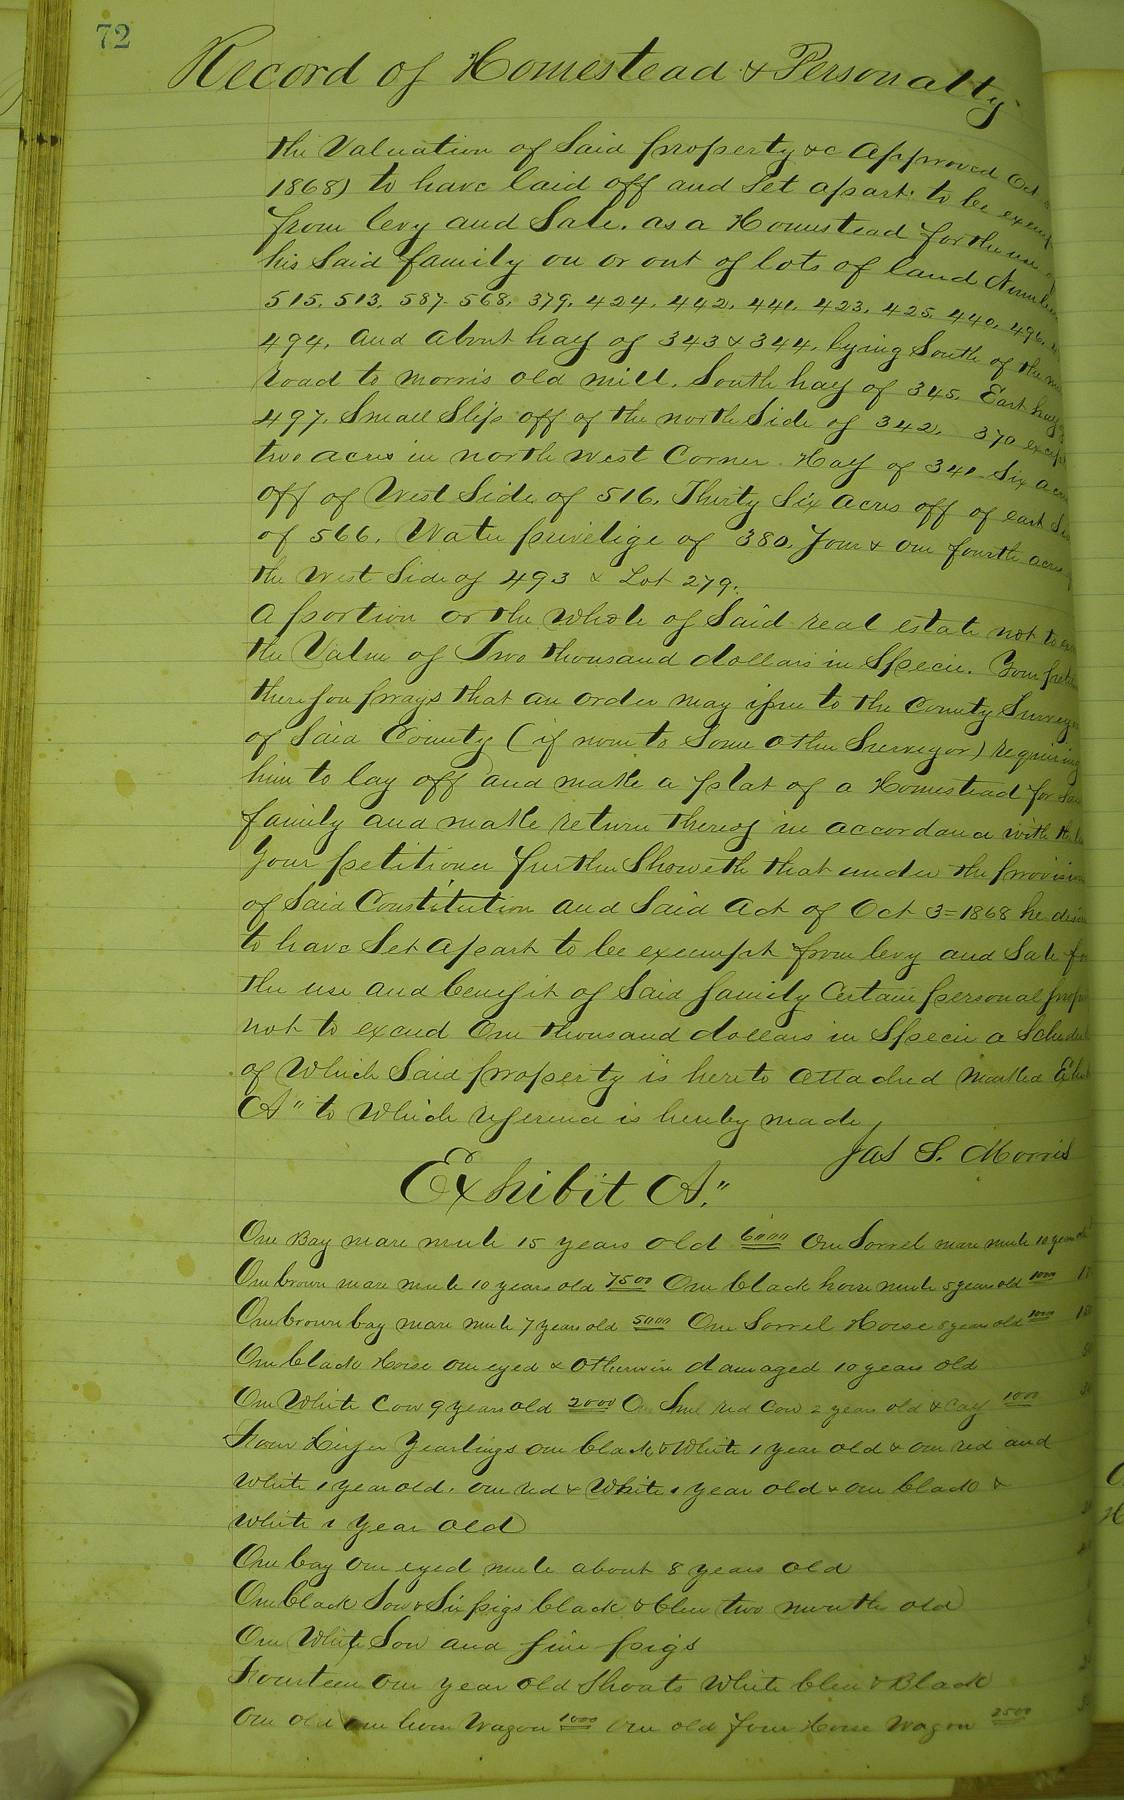 72
Record of Homestead & Personalty
the Valuation of Said property &c Approved Oct
1868) to have laid off and Set apart to be exempt
from levy and Sale. as a Homestead for the use of
his Said family on or out of lots of land Number
515. 513. 587. 568. 379. 424. 442. 441. 423. 425. 440. 496.
494. and about half of 343 & 344. lying South of the
road to morris old mill. South half of 345. East half
497. Small Slip off of the north Side of 342. 370 except
two acres in north west Corner. Half of 341 Six acres
off of West Side of 516. Thirty Six acres off of east Side
of 566. Water privelige of 380. Four & one fourth acres
the West Side of 493 & Lot 279.
A portion or the whole of Said real estate not to
the Value of Two thousand dollars in Specie. Your
therefore prays that an order may issue to the County Surveyor
of Said County (if none to Some other Surveyor) requiring
him to lay off and make a plat of a Homestead for Said
family and make return thereof in accordance with the
Your petitioner further Showeth that under the provision
of Said Constitution and Said Act of Oct 3=1868 he
to have Set apart to be exempt from levy and Sale for
the use and benefit of Said family Certain personal
not to exceed One thousand dollars in Specie a Schedule
of Which Said property is hereto attached marked
A" to Which reference is hereby made
Jas S. Morris
Exhibit A."
One Bay mare mule 15 years old 6000 One Sorrel mare mule 10 years old
One brown mare mule 10 years old 7500 One black horse mule 5 years old
One brown bay mare mule 7 years old 5000 One Sorrel Horse 8 years old
One black Horse one eyed & otherwise damaged 10 years old
One White Cow 9 years old 2000 One red Cow 2 years old & Calf 1000
Four Heifer Yearlings one black & White 1 year old & one red and
White 1 year old. one red & White 1 year old & one black &
White 1 year old
One bay one eyed mule about 8 years old
One black Sow & Six pigs black & blue two months old
One White Sow and five pigs
Fourteen one year old Shoats White blue & Black
One old one horse Wagon 1000 One old four Horse Wagon 2500